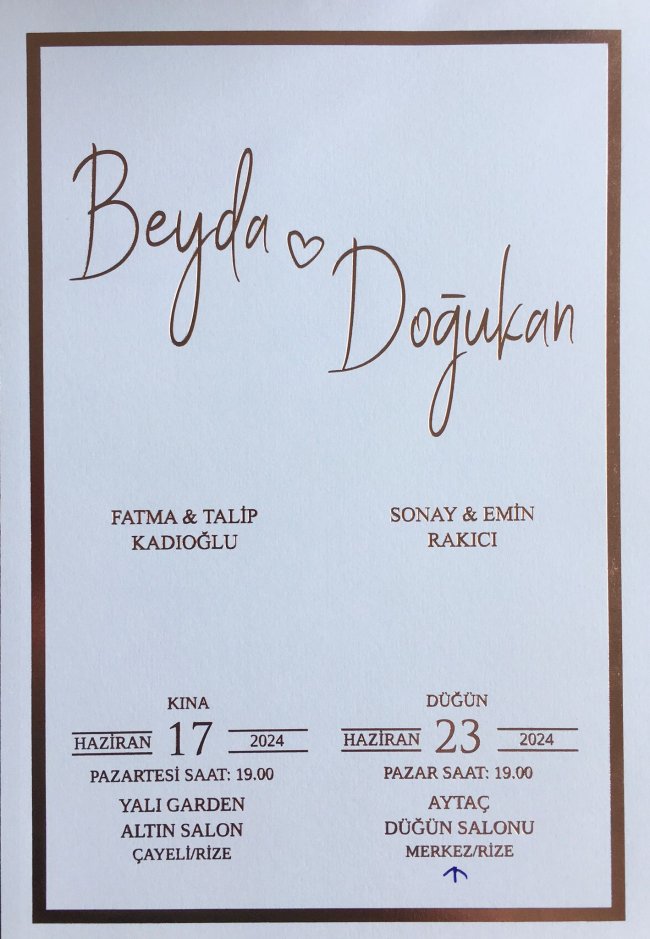 Beyda ♡
Doğukan
FATMA & TALİP
KADIOĞLU
SONAY & EMİN
RAKICI
KINA
HAZİRAN 17 2024
PAZARTESİ SAAT: 19.00
YALI GARDEN
ALTIN SALON
ÇAYELİ/RİZE
DÜĞÜN
HAZİRAN 23 2024
PAZAR SAAT: 19.00
AYTAÇ
DÜĞÜN SALONU
MERKEZ/RİZE